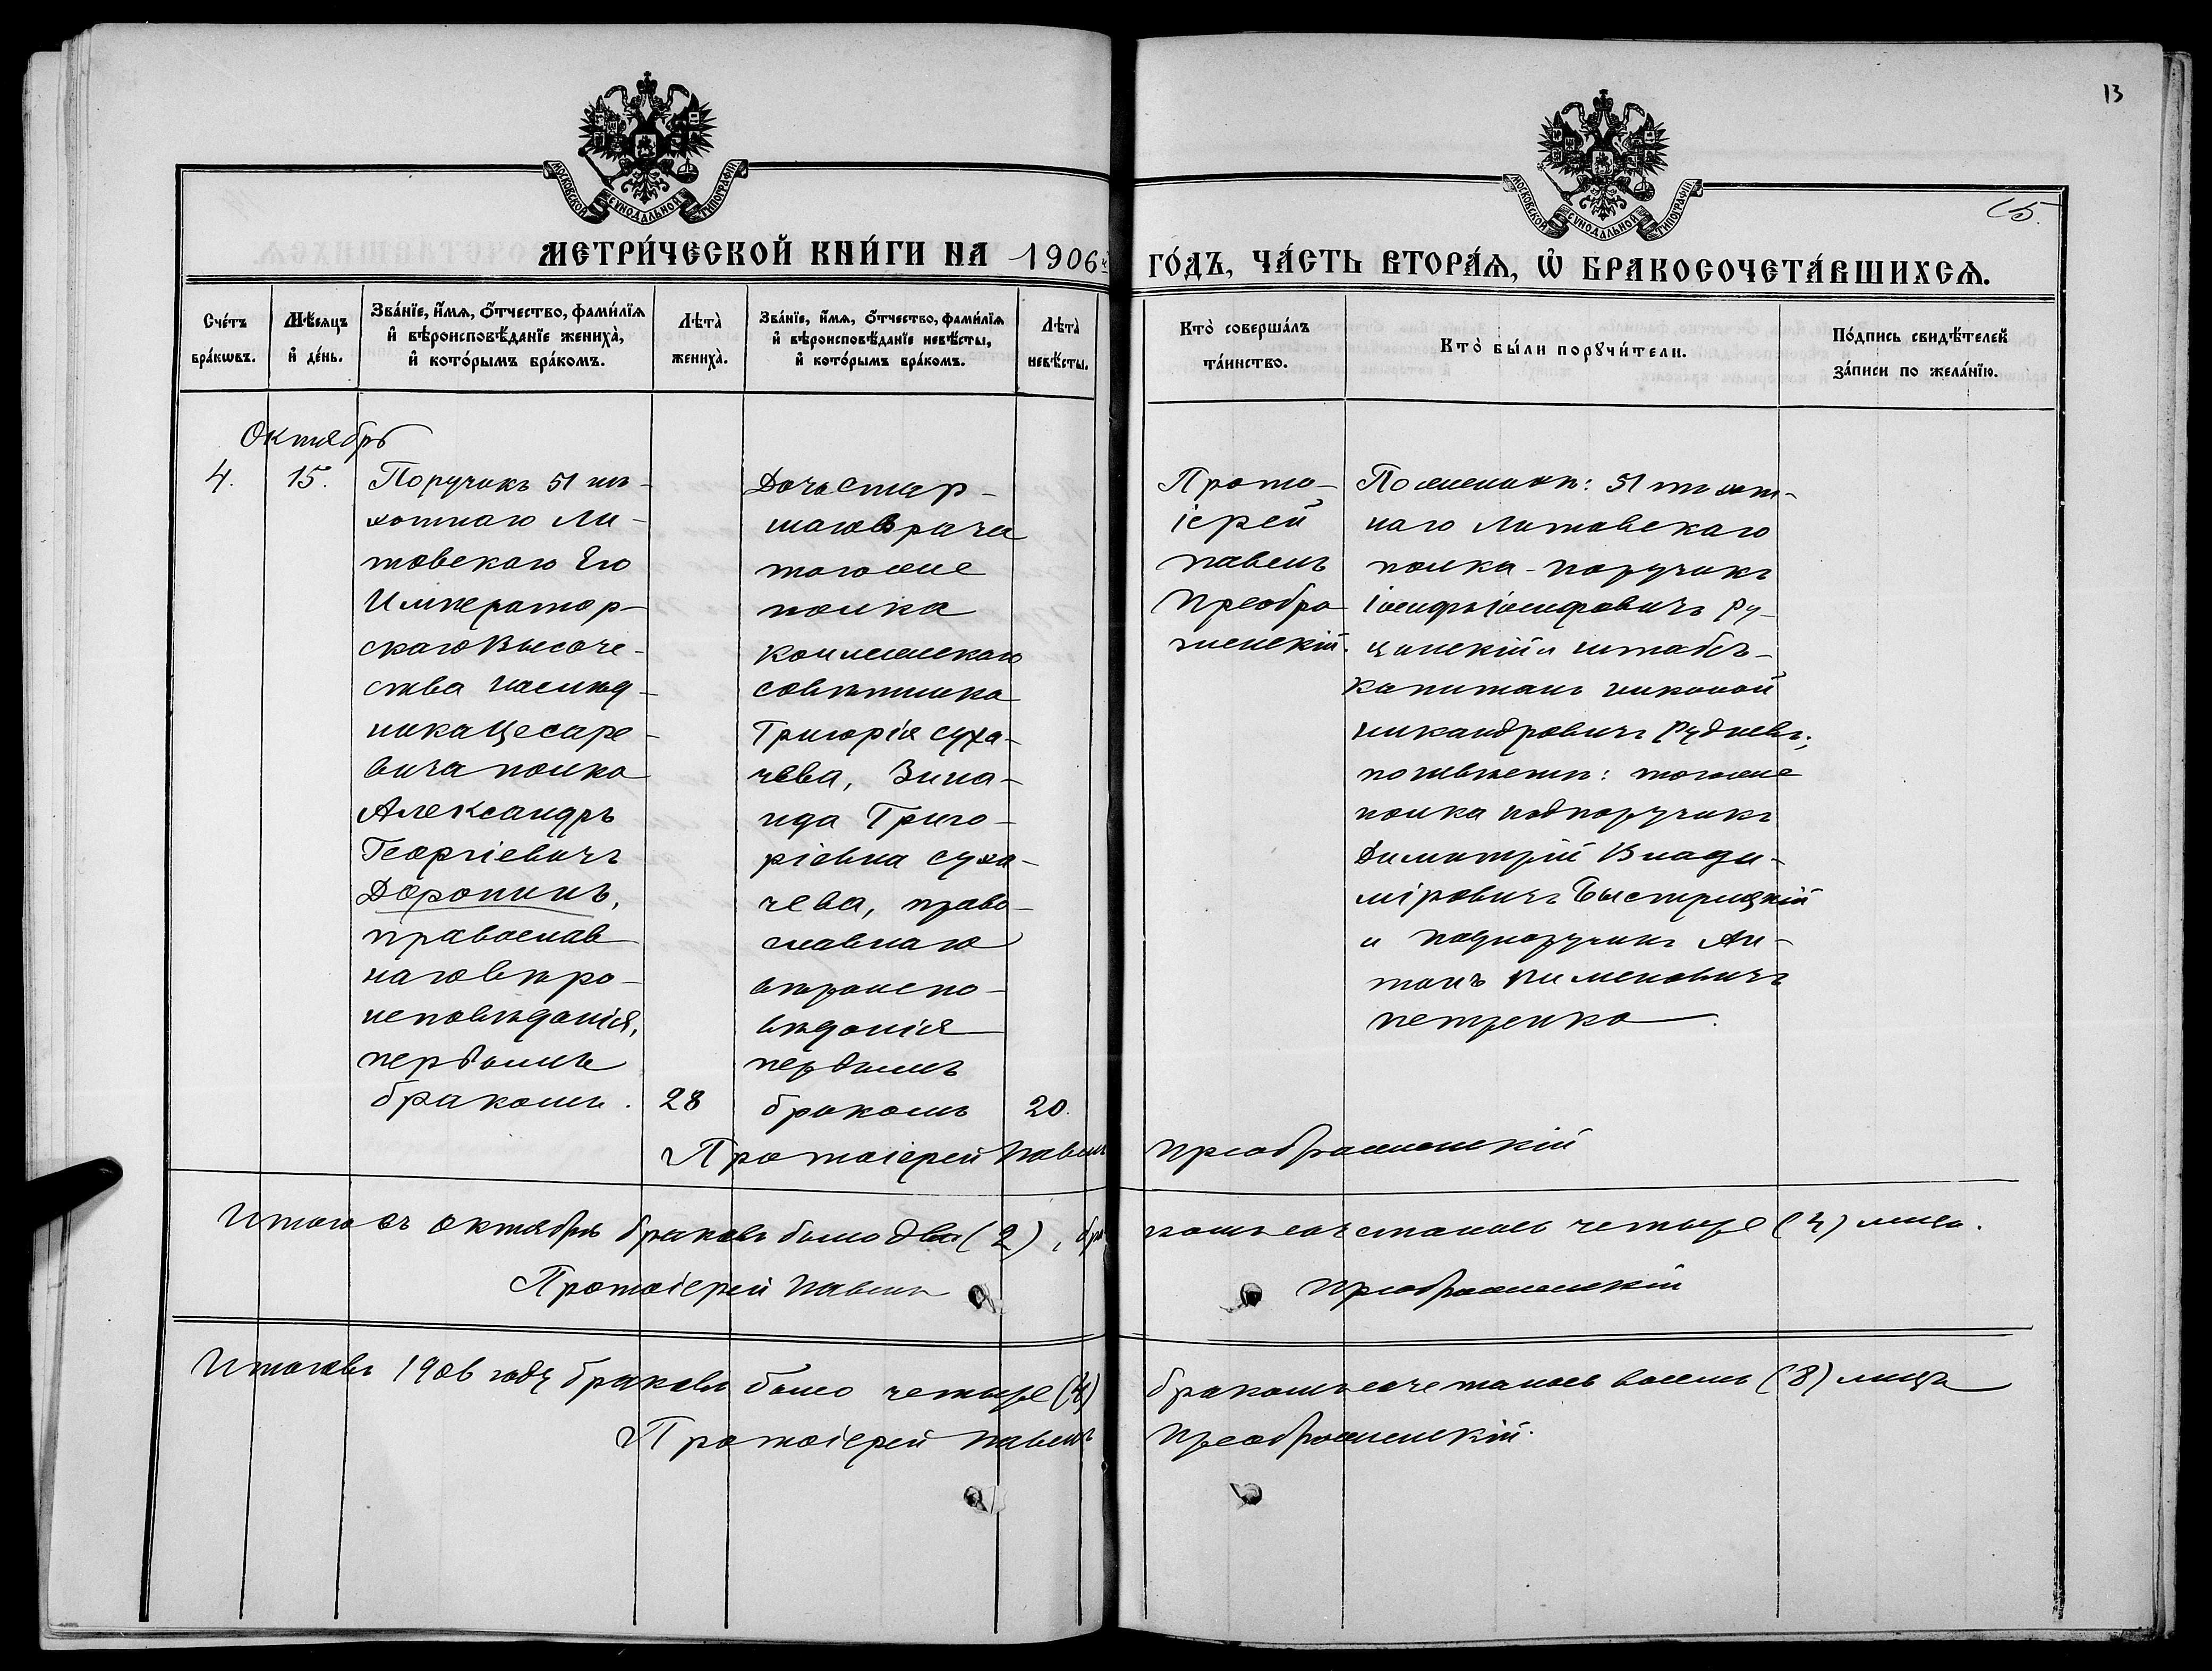 13
МОСКОВСКОЙ СѴНОДАЛЬНОЙ ТИПОГРАФІИ.
МОСКОВСКОЙ СѴНОДАЛЬНОЙ ТИПОГРАФІИ.
15.
МЕТРИ́ЧЕСКОЙ КНИ́ГИ НА 1906й
ГО́ДЪ, ЧА́СТЬ ВТОРА́Ѧ, Ѽ БРАКОСОЧЕТА́ВШИХСѦ.
Сче́тъ
бра́кѡвъ.
Мѣ́сѧцъ
и҆ де́нь.
Зва́нїе, и҆́мѧ, ѻ҆́тчество, фами́лїѧ
и҆ вѣроисповѣ́данїе жениха̀,
и҆ кото́рымъ бра́комъ.
Лѣта̀
жениха̀.
Зва́нїе, и҆́мѧ, ѻ҆́тчество, фами́лїѧ
и҆ вѣроисповѣ́данїе невѣ́сты,
и҆ кото́рымъ бра́комъ.
Лѣта̀
невѣ́сты.
Кто̀ соверша́лъ
та́инство.
Кто̀ бы́ли порꙋчи́тели.
По́дпись свидѣ́телей
за́писи по жела́нїю.
Октябрь
4.
15.
Поручикъ 51 пѣ-
хотнаго Ли-
товскаго Его
Император-
скаго Высоче-
ства Наслѣд-
ника Цесаре-
вича полка
Александръ
Георгіевичъ
Доронинъ,
православ
наго вѣро-
исповѣданія,
первымъ
бракомъ.
28
Дочь стар-
шаго врача
того же
полка
Коллежскаго
совѣтника
Григорія Суха-
чева, Зина-
ида Григо-
ріевна Суха-
чева, право-
славнаго
вѣроиспо-
вѣданія
первымъ
бракомъ
20.
Прото-
іерей
Павелъ
Преобра
женскій.
По женихѣ: 51 пѣхот-
наго Литовскаго
полка - поручикъ
Іосифъ Іосифовичъ Ру-
цинскій и штабсъ-
капитанъ Николай
Никандровичъ Рудневъ;
по невѣстѣ: того же
полка подпоручикъ
Димитрій Влади-
міровичъ Быстрицкій
и подпоручикъ Ан-
тонъ Пименовичъ
Петренко.
Протоіерей Павелъ Преображенскій
Итого въ октябрѣ браковъ было два (2), бра комъ сочеталось четыре (4) лица.
Протоіерей Павелъ Преображенскій
Итого въ 1906 году браковъ было четыре (4) бракомъ сочеталось восемь (8) лицъ
Протоіерей Павелъ Преображенскій.